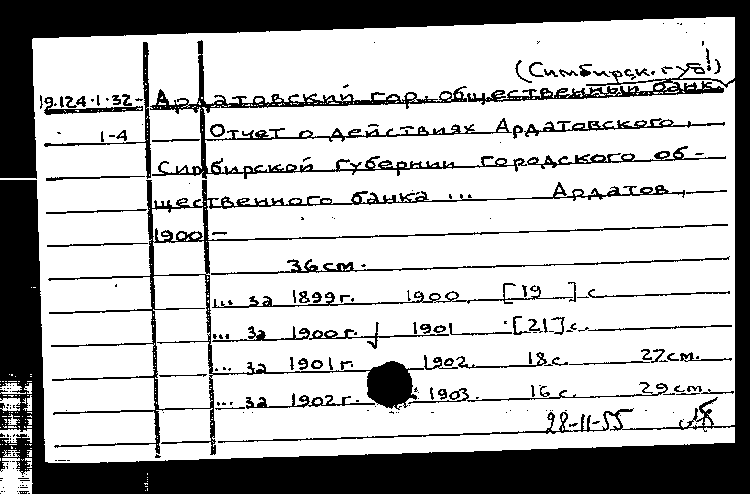 (Симбирск. губ!)
19.124.1.32- Ардатовский гор. общественный банк.
1-4 Отчет о действиях Ардатовского,
Симбирской губернии городского об-
щественного банка ... Ардатов,
1900-
36см.
... за 1899г. 1900. [19 ] с.
... за 1900г. 1901 [21] с.
... за 1901г. 1902. 18с. 27см.
... за 1902г. 1903. 16с. 29см.
28-11-55